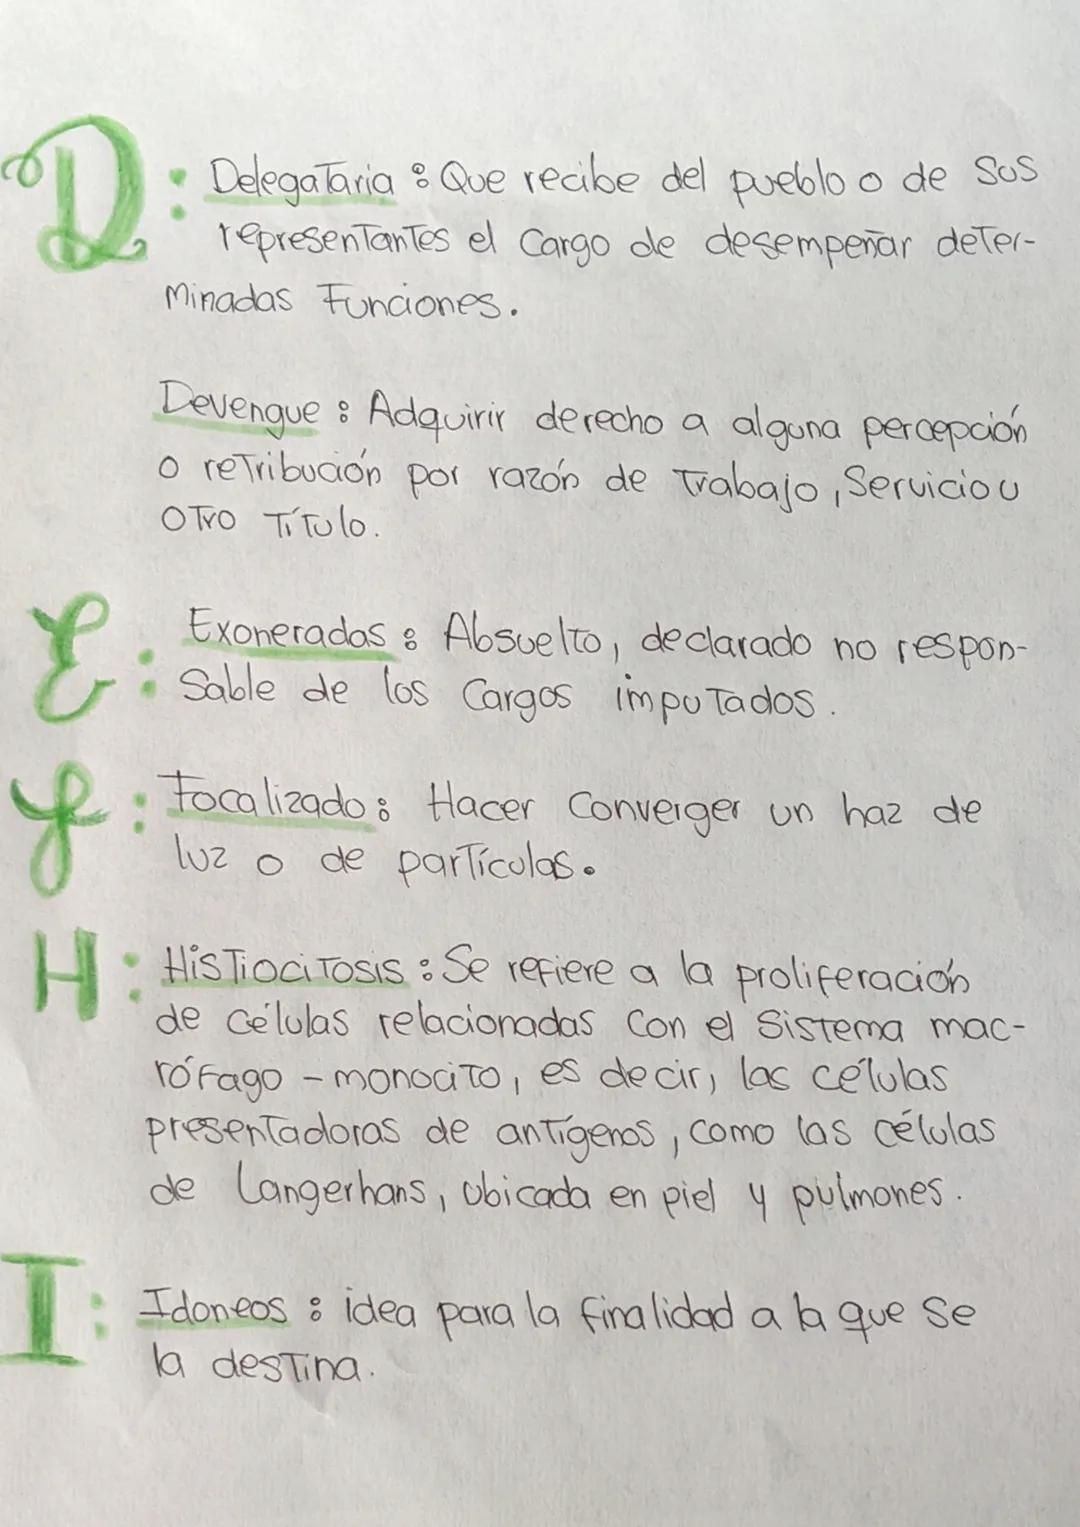 D: Delegataria: Que recibe del pueblo o de sus
representantes el cargo de desempeñar deter-
minadas Funciones.
Devengue: Adquirir derecho a alguna percepción
o retribución por razón de trabajo, Servicio u
otro título.
E: Exoneradas: Absuelto, declarado no respon-
sable de los cargos imputados.
F: Focalizado: Hacer Converger un haz de
luz o de partículas.
H: Histiocitosis: Se refiere a la proliferación
de células relacionadas con el sistema mac-
rófago - monocito, es decir, las células
presentadoras de antígenos, como las células
de Langerhans, ubicada en piel y pulmones.
I: Idoneos: idea para la finalidad a la que se
la destina.